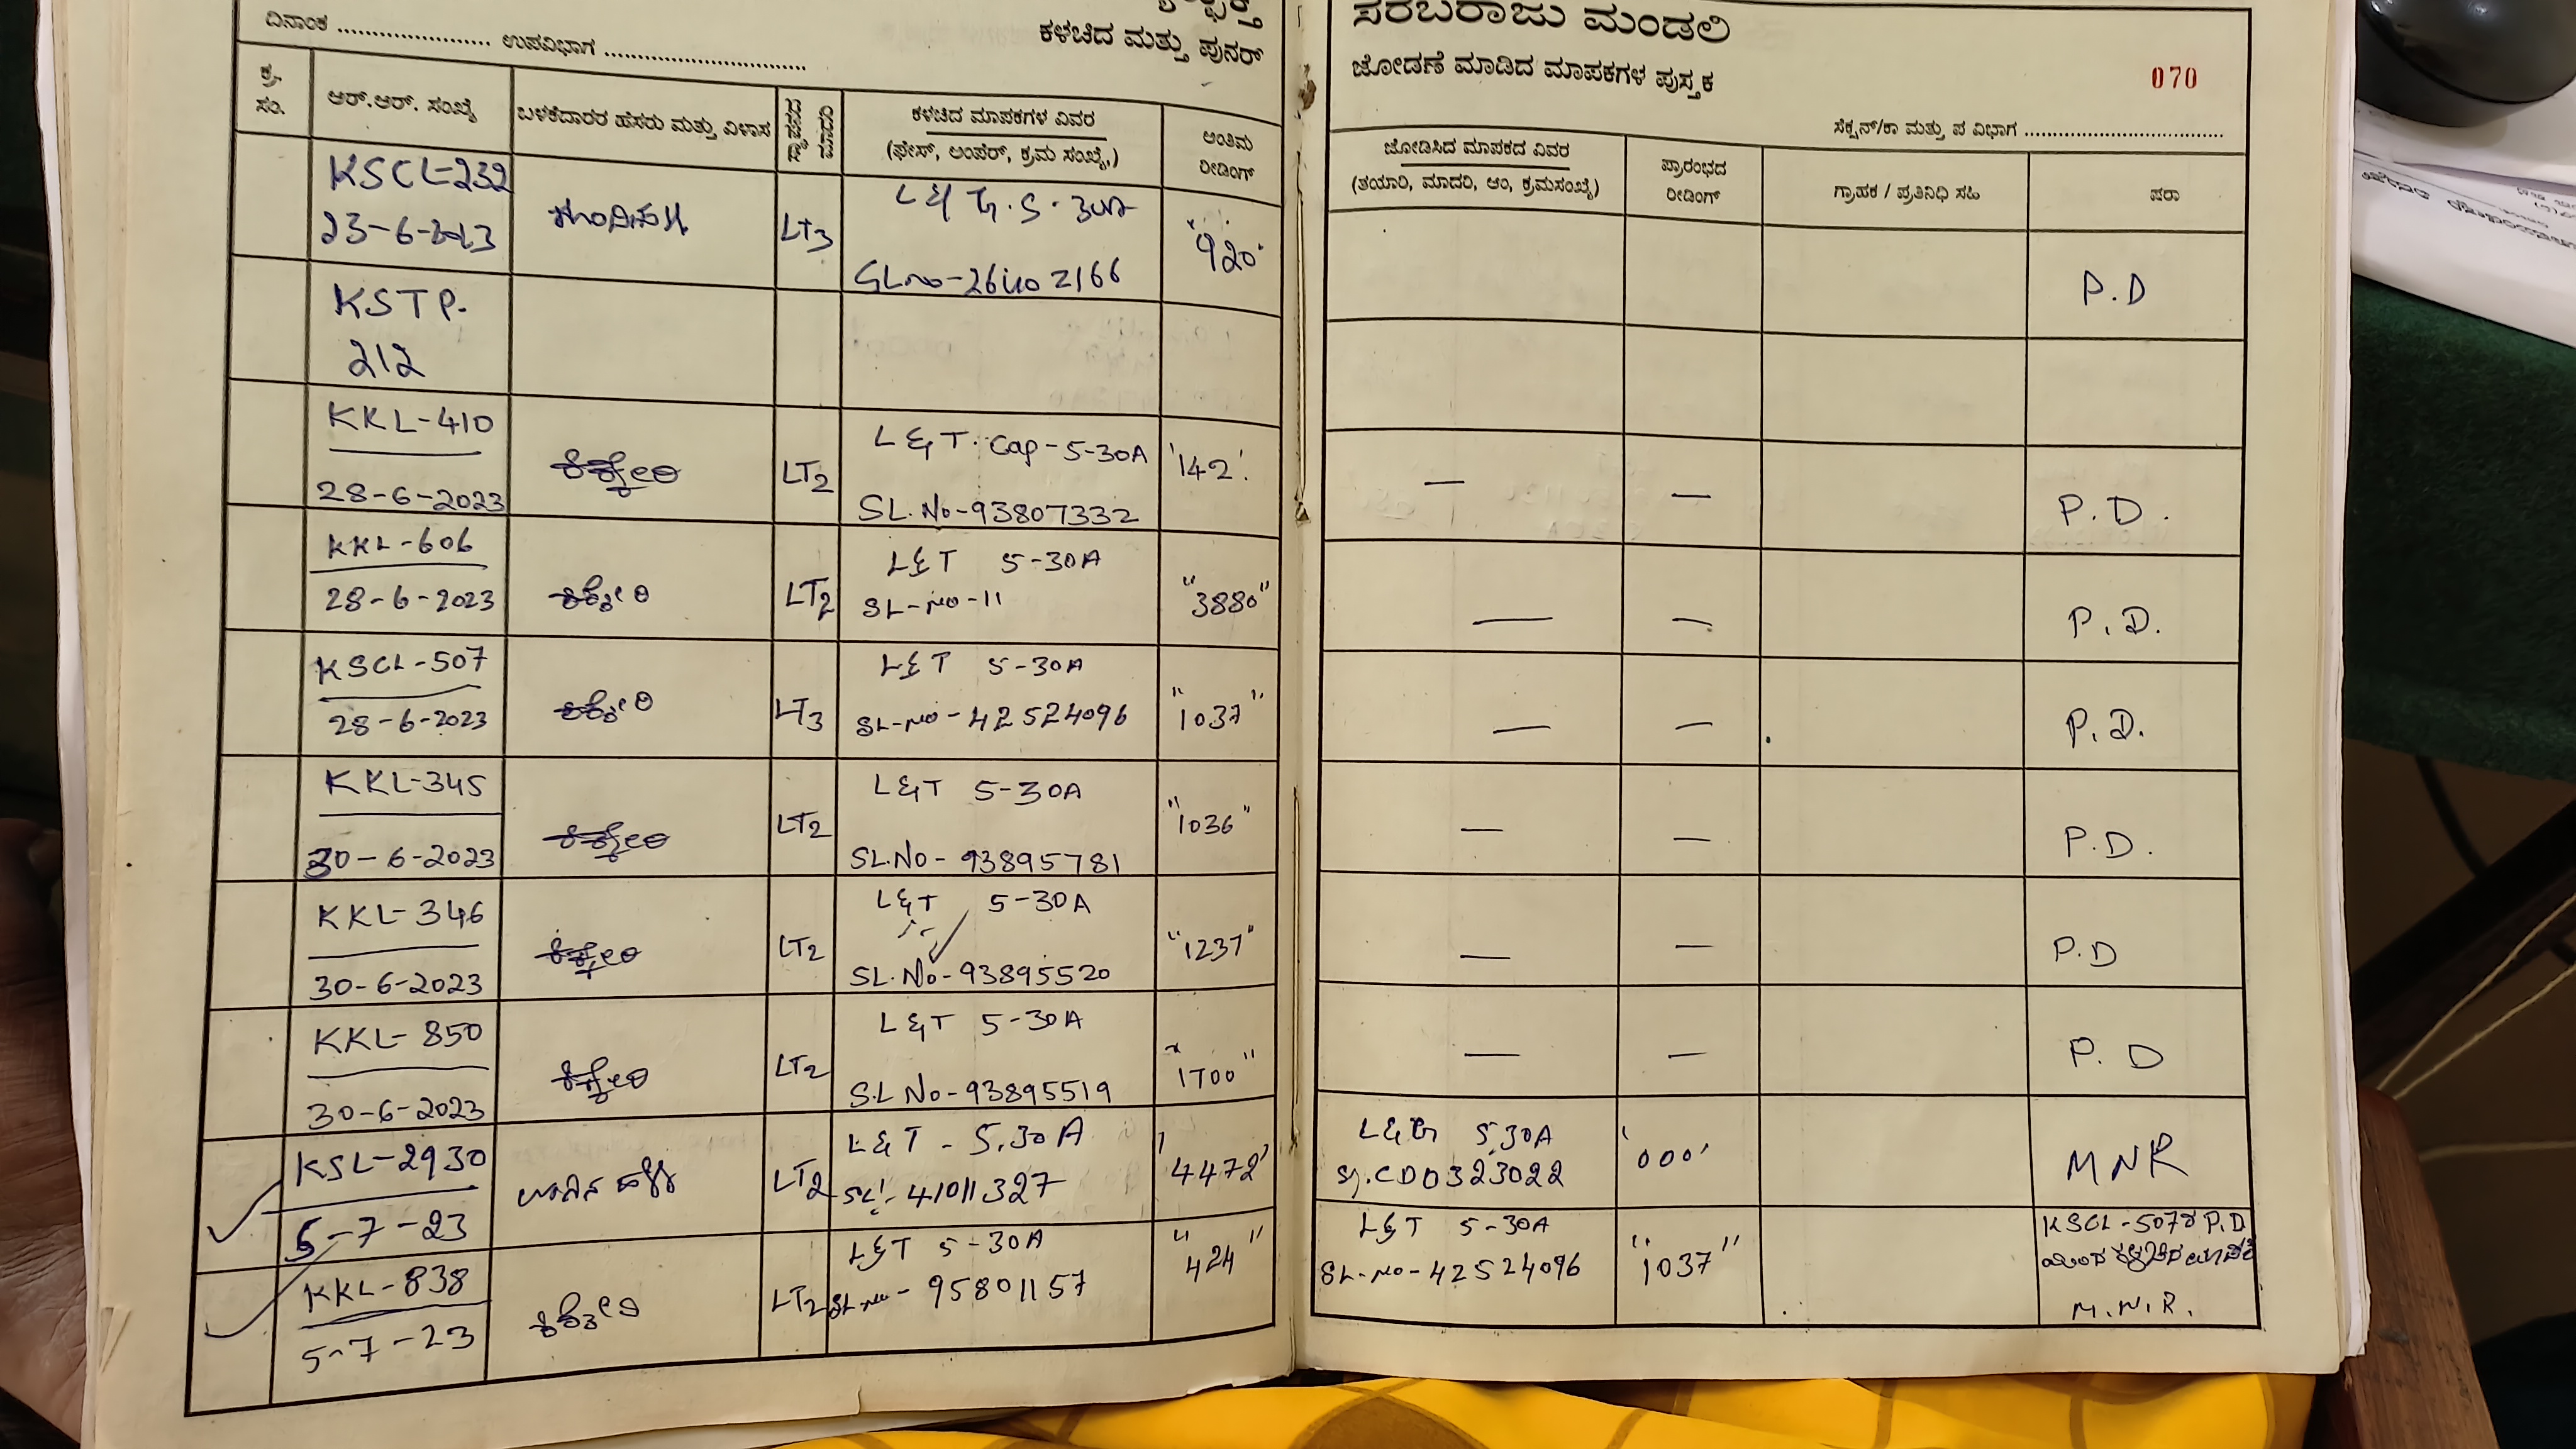 ದಿನಾಂಕ ........................ ಉಪವಿಭಾಗ ................................
ಕಳಚಿದ ಮತ್ತು ಪುನರ್
ಕ್ರ. ಸಂ.
ಆರ್.ಆರ್. ಸಂಖ್ಯೆ
ಬಳಕೆದಾರರ ಹೆಸರು ಮತ್ತು ವಿಳಾಸ
ಸ್ಥಾಪನದ ಮಾದರಿ
ಕಳಚಿದ ಮಾಪಕಗಳ ವಿವರ
(ಫೇಸ್, ಅಂಪೆರ್, ಕ್ರಮ ಸಂಖ್ಯೆ,)
ಅಂತಿಮ ರೀಡಿಂಗ್
KSCL-232
23-6-2023
LT3
SL no-26110 2166
"920"
KSTP-
212
KKL-410
28-6-2023
ಕಿಕ್ಕೇರಿ
LT2
L&T. Cap-5-30A
SL.No-93807332
'142'
KKL-606
28-6-2023
ಕಿಕ್ಕೇರಿ
LT2
L&T 5-30A
SL-no-11
"3880"
KSCL-507
28-6-2023
ಕಿಕ್ಕೇರಿ
LT3
L&T 5-30A
SL-no-42524096
"1037"
KKL-345
30-6-2023
ಕಿಕ್ಕೇರಿ
LT2
L&T 5-30A
SL.No-93895781
"1036"
KKL-346
30-6-2023
ಕಿಕ್ಕೇರಿ
LT2
L&T 5-30A
SL.No-93895520
"1237"
KKL-850
30-6-2023
ಕಿಕ್ಕೇರಿ
LT2
L&T 5-30A
S.L No-93895519
"1700"
KSL-2930
5-7-23
LT2
L&T - 5.30A
SL:- 41011327
'4472'
KKL-838
5-7-23
ಕಿಕ್ಕೇರಿ
LT2
L&T 5-30A
SL-no-95801157
"424"
ಸರಬರಾಜು ಮಂಡಲಿ
ಜೋಡಣೆ ಮಾಡಿದ ಮಾಪಕಗಳ ಪುಸ್ತಕ
070
ಸೆಕ್ಷನ್/ಕಾ ಮತ್ತು ಪ ವಿಭಾಗ ................................
ಜೋಡಿಸಿದ ಮಾಪಕದ ವಿವರ
(ತಯಾರಿ, ಮಾದರಿ, ಆಂ, ಕ್ರಮಸಂಖ್ಯೆ)
ಪ್ರಾರಂಭದ ರೀಡಿಂಗ್
ಗ್ರಾಹಕ / ಪ್ರತಿನಿಧಿ ಸಹಿ
ಷರಾ
P.D
— — P.D.
— — P.D.
— — P.D.
— — P.D.
— — P.D
— — P.D
L&T 5.30A
Sl.CD0323022
'000'
MNR
L&T 5-30A
SL-no-42524096
"1037"
KSCL-507ರ P.D
M.N.R.